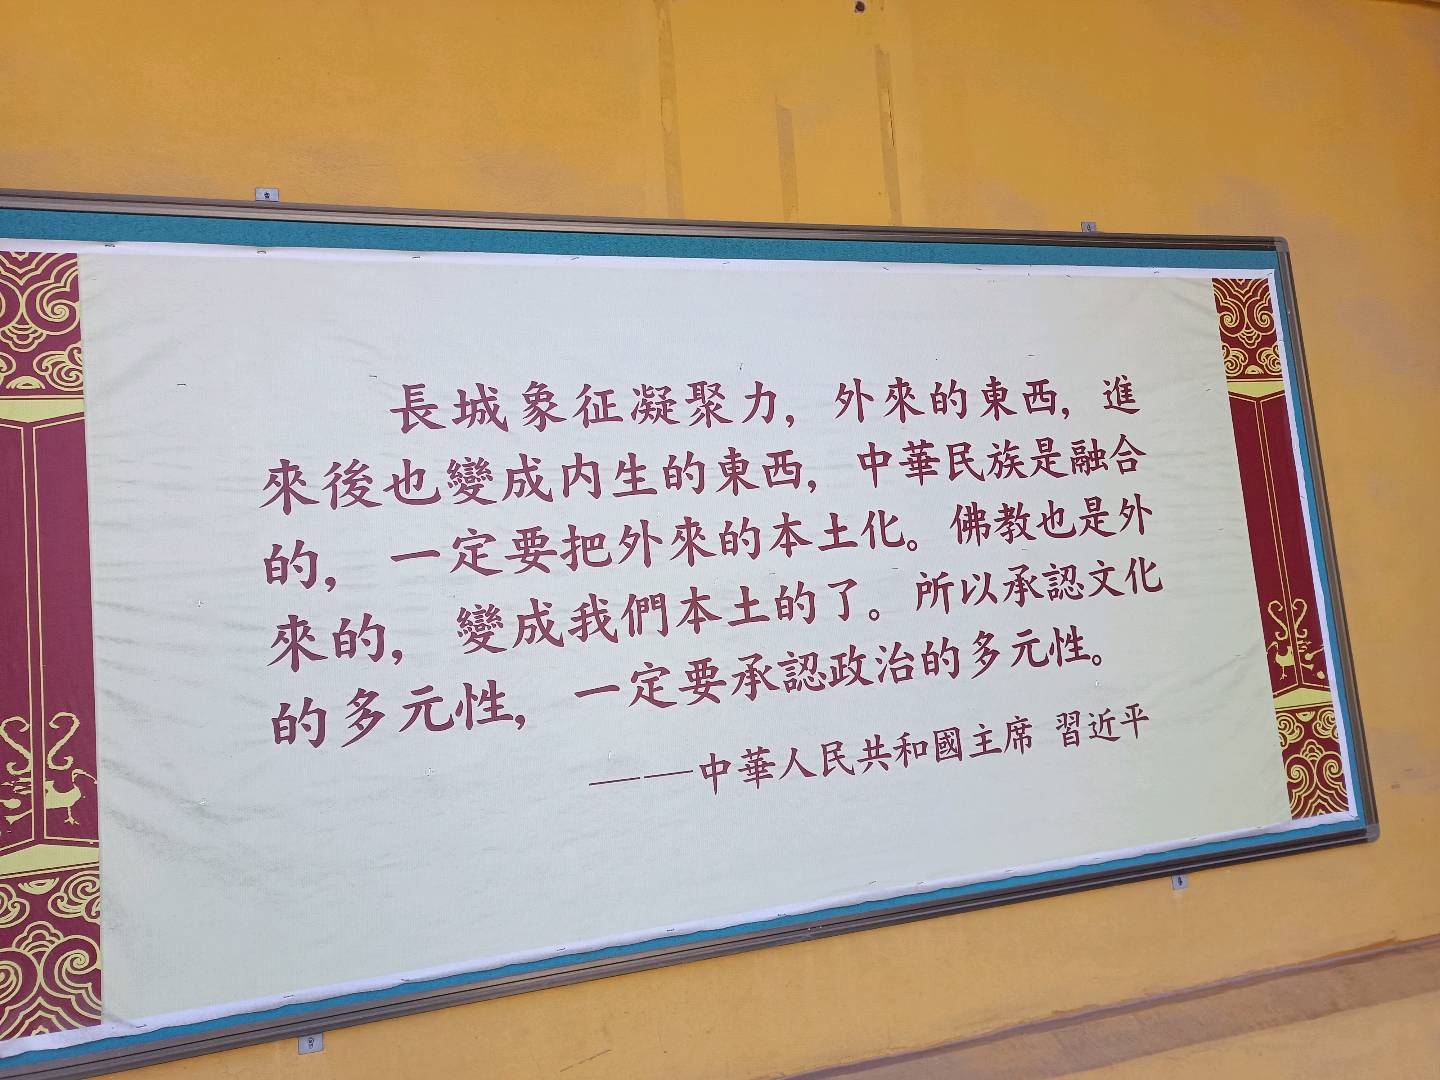 長城象征凝聚力，外來的東西，進
來後也變成内生的東西，中華民族是融合
的，一定要把外來的本土化。佛教也是外
來的，變成我們本土的了。所以承認文化
的多元性，一定要承認政治的多元性。
——中華人民共和國主席 習近平